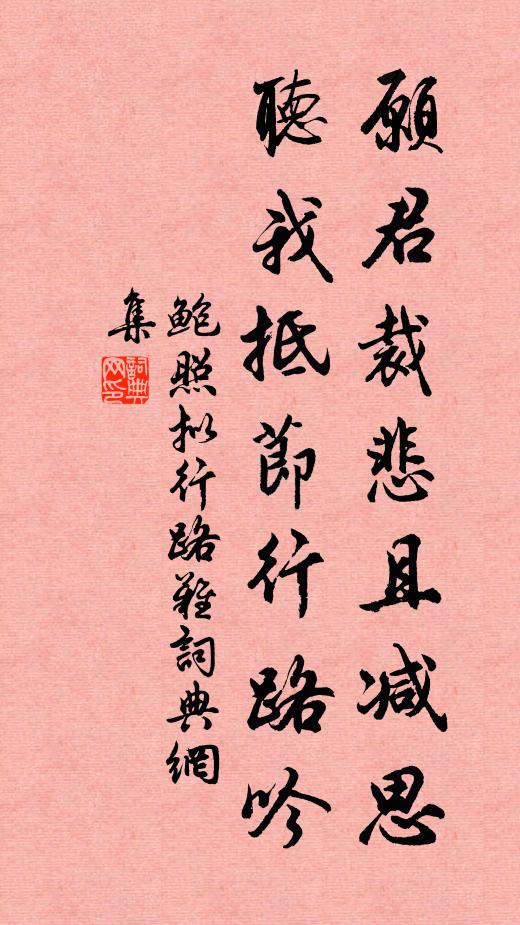 願君裁悲且减思
聽我抵節行路吟
鮑照拟行路難詞典網
集
詞典
网印